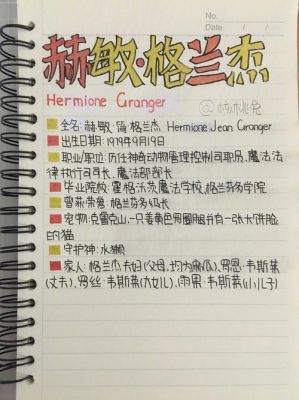 No.
Date. / /
赫敏·格兰杰
Hermione Granger
@桃桃兔
全名:赫敏·简·格兰杰 Hermione Jean Granger
出生日期:1979年9月19日
职业/职位:历任神奇动物管理控制司职员,魔法法
律执行司司长,魔法部部长
毕业院校:霍格沃茨魔法学校,格兰芬多学院
曾获荣誉:格兰芬多级长
宠物:克鲁克山,一只姜黄色罗圈腿并有一张大饼脸
的猫
守护神:水獭
家人:格兰杰夫妇(父母,均为麻瓜),罗恩·韦斯莱
(丈夫),罗丝·韦斯莱(大女儿),雨果·韦斯莱(小儿子)